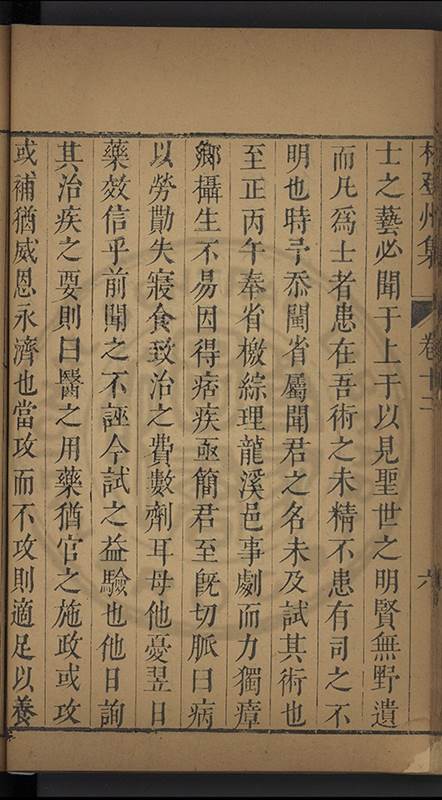 林登州集 卷十二 六
士之藝必聞于上于以見聖世之明賢無野遺
而凡為士者患在吾術之未精不患有司之不
明也時予忝閩省屬聞君之名未及試其術也
至正丙午奉省檄綜理龍溪邑事劇而力獨瘴
鄉攝生不易因得痞疾亟簡君至旣切脈曰病
以勞勩失寢食致治之費數劑耳毋他憂翌日
藥效信乎前聞之不誣今試之益驗也他日詢
其治疾之要則曰醫之用藥猶官之施政或攻
或補猶威恩永濟也當攻而不攻則適足以養